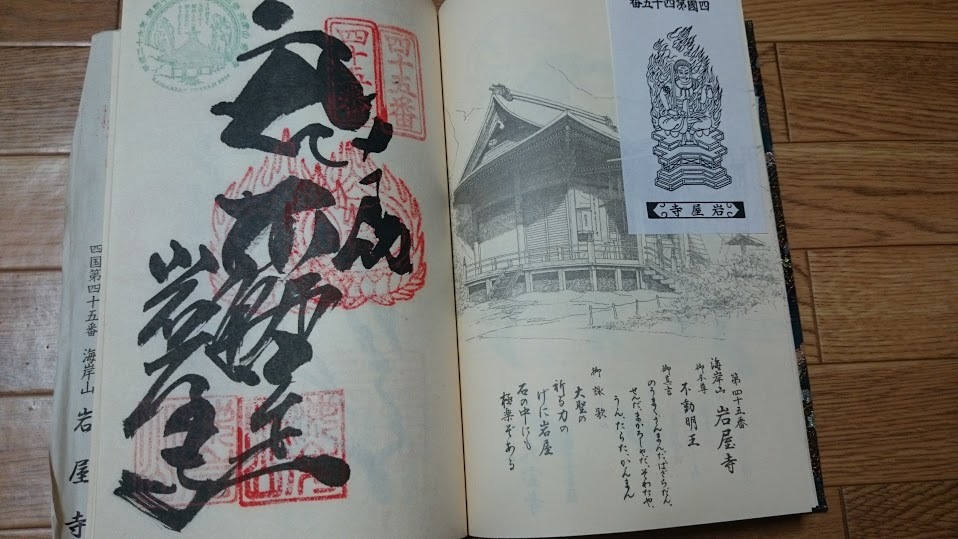 四國第四十五番
岩屋寺
第四十五番
海岸山 岩屋寺
御本尊
不動明王
御真言
のうまくさんまんだ、ばざらだん、
せんだ、まかろしゃだ、そわたや、
うんたらた、かんまん
御詠歌
大聖の
祈る力の
げに岩屋
石の中にも
極楽ぞある
四十五番
奉納
不動明王
岩屋寺
四国第四十五番 海岸山 岩屋寺